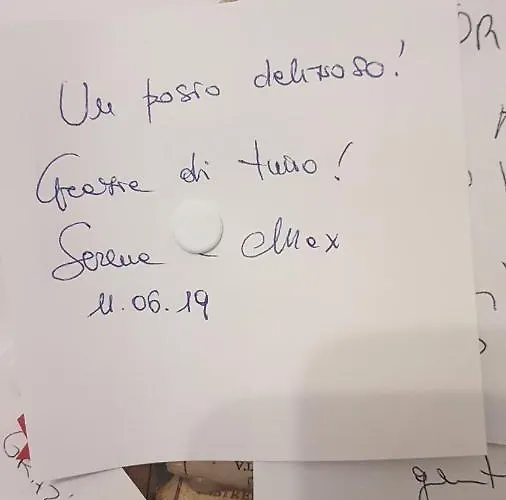 Un posto delizioso!
Grazie di tutto!
Serena e Max
11.06.19
OR
gent
V.L